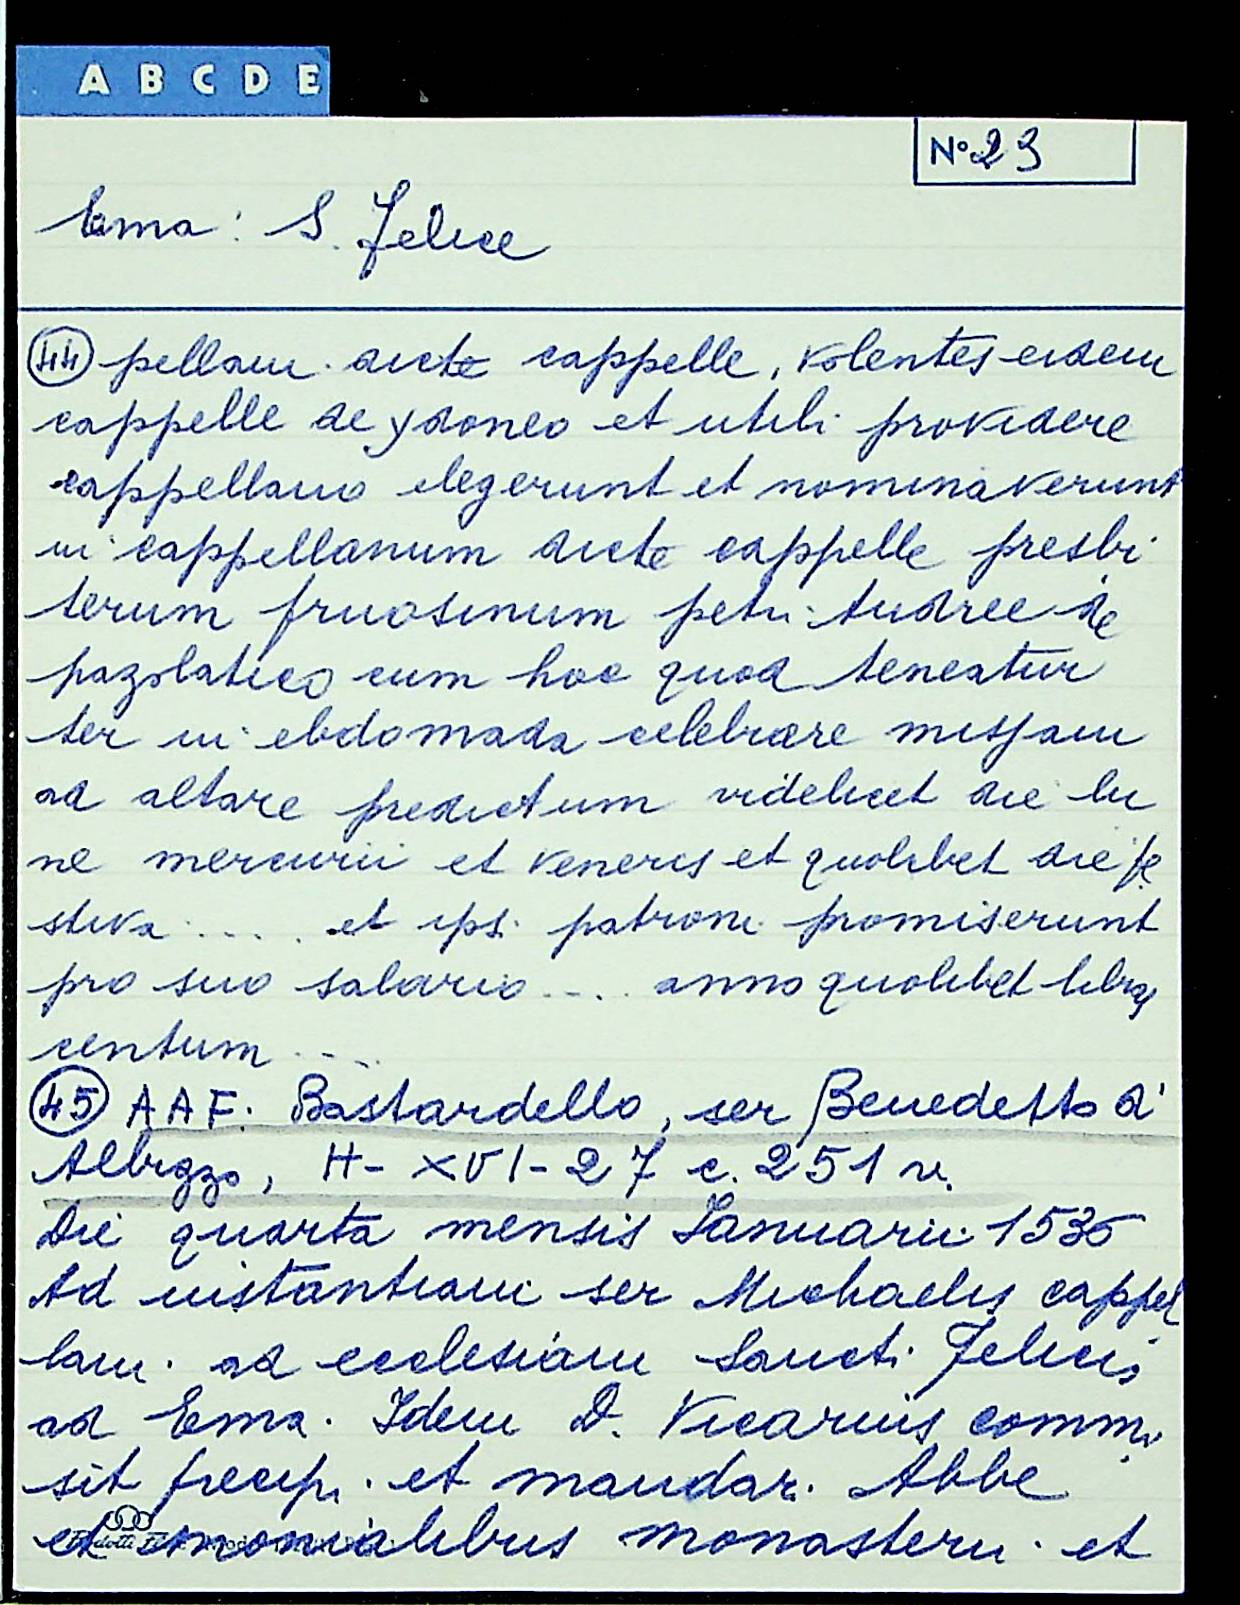 A B C D E
Nº 23
Ema: S. Felice
44 pellam. dicte cappelle, volentes eidem
cappelle de ydoneo et utili providere
cappellano elegerunt et nominaverunt
in cappellanum dicte cappelle presbi
terum fruosinum petri Andree de
pazolatico cum hoc quod teneatur
ter in ebdomada celebrare missam
ad altare predictum videlicet die lu
ne mercurii et veneris et quolibet die fe
stiva .... et ipsi patroni promiserunt
pro suo salario .... anno quolibet libras
centum ....
45 AAF. Bastardello, ser Benedetto d'
Albizzo, H-XVI-27 c. 251 v.
Die quarta mensis Ianuarii 1535
Ad instantiam ser Michaelis cappel
lani ad ecclesiam Sancti Felicis
ad Ema. Idem D. Vicarius commi
sit precip. et mandar. Abbe
et monialibus monasterii et